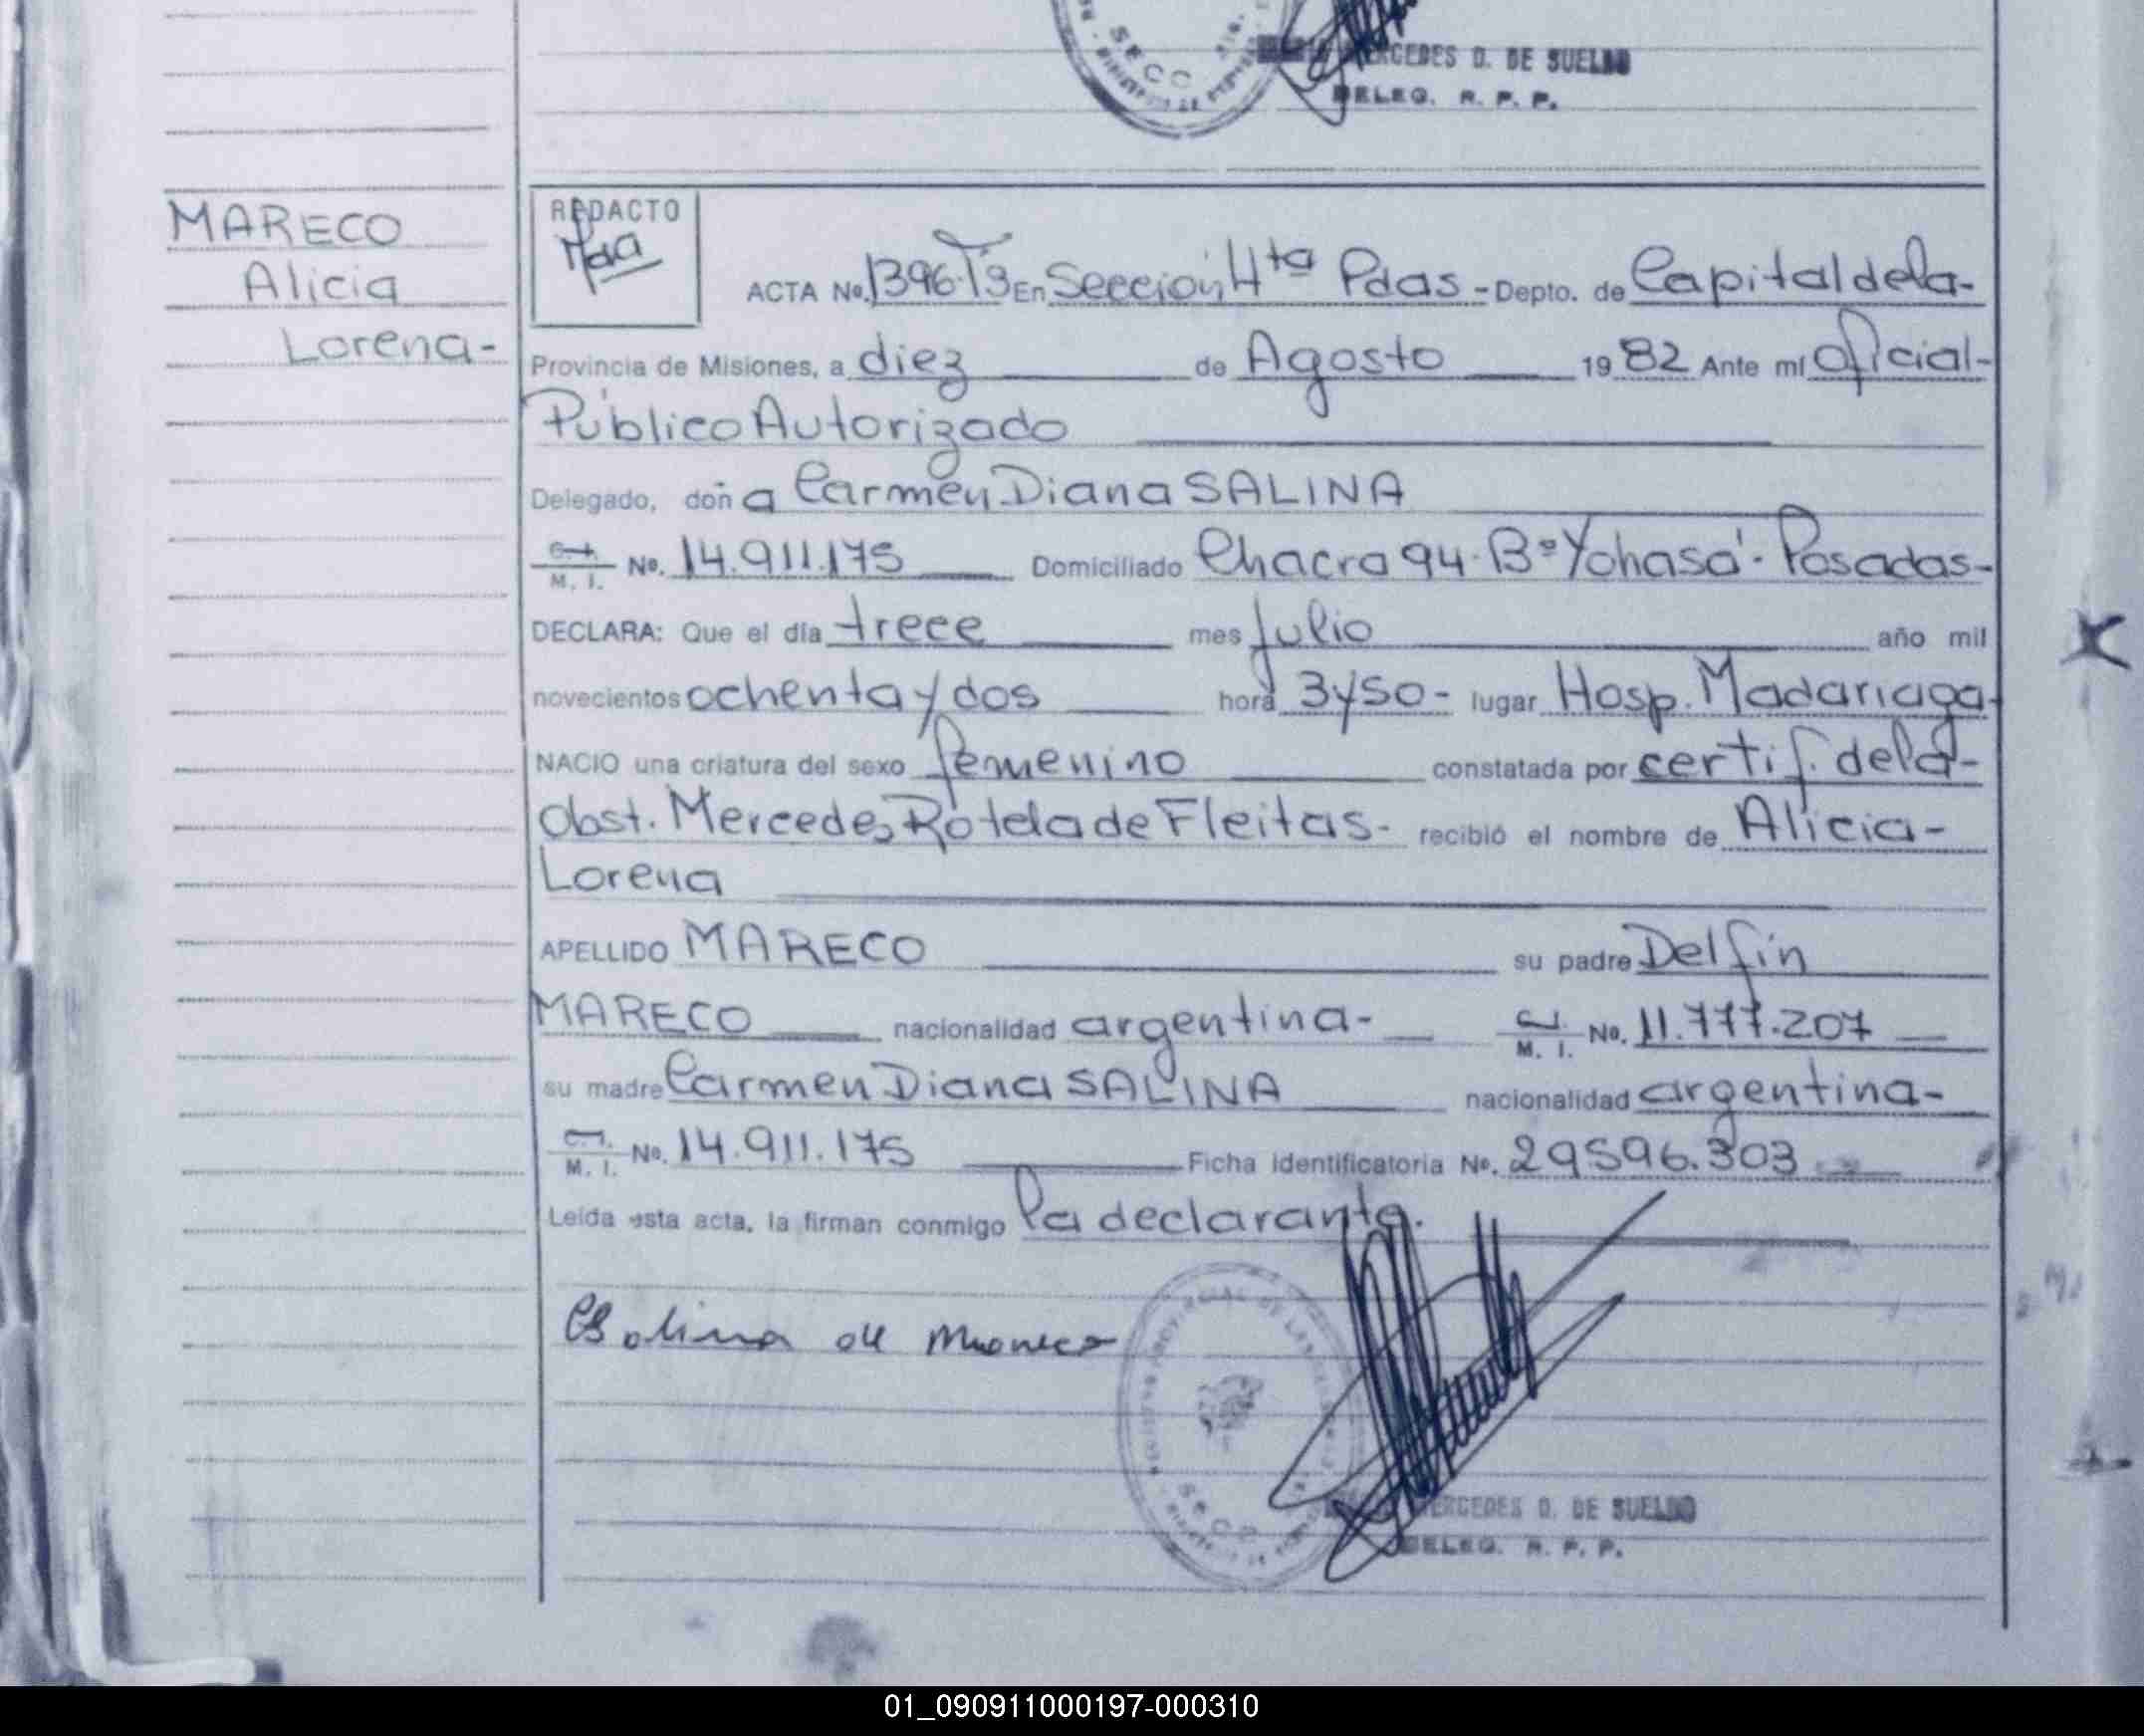 SECC
MERCEDES D. DE SUELDO
DELEG. R. P. P.
MARECO
Alicia
Lorena-
REDACTO
ACTA No. 1396 Tº 9 En Sección 4ta Pdas - Depto. de Capital de la-
Provincia de Misiones, a diez de Agosto 1982 Ante mí Oficial-
Público Autorizado
Delegado, doña Carmen Diana SALINA
C. I. M. I. No. 14.911.175 Domiciliado Chacra 94 - Bº Yohasá - Posadas-
DECLARA: Que el día trece mes Julio año mil
novecientos ochenta y dos hora 3 y 50- lugar Hosp. Madariaga-
NACIO una criatura del sexo femenino constatada por certif. de la-
Obst. Mercedes Rotela de Fleitas- recibió el nombre de Alicia-
Lorena
APELLIDO MARECO su padre Delfín
MARECO nacionalidad argentina- C. I. M. I. No. 11.777.207
su madre Carmen Diana SALINA nacionalidad argentina-
C. I. M. I. No. 14.911.175 Ficha Identificatoria No. 29596.303
Leída esta acta, la firman conmigo la declarante.
CSalina de Mareco
SECC
MERCEDES D. DE SUELDO
DELEG. R. P. P.
01_090911000197-000310